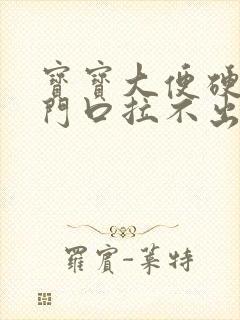 寶寶大便硬
門口拉不出
羅賓-萊特